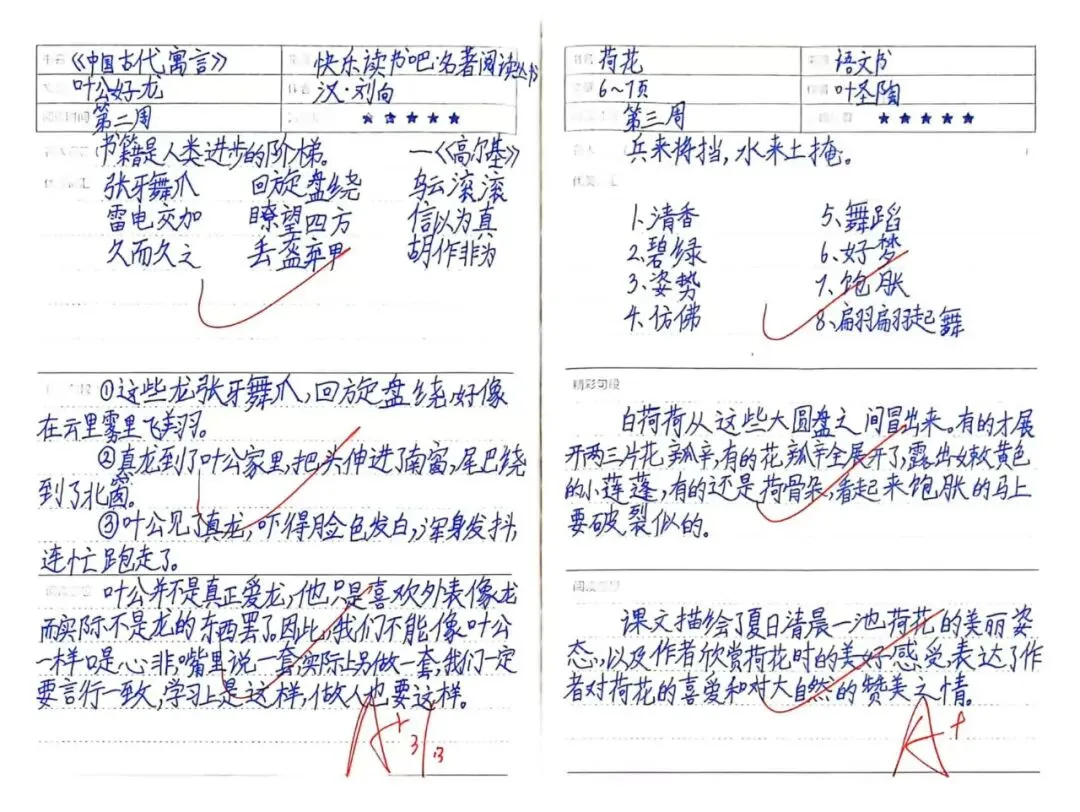 《中国古代寓言》 快乐读书吧·名著阅读丛书
叶公好龙 汉·刘向
阅读时间 第二周 ★★★★★
书籍是人类进步的阶梯。 —《高尔基》
张牙舞爪 回旋盘绕 乌云滚滚
雷电交加 瞭望四方 信以为真
久而久之 丢盔弃甲 胡作非为
①这些龙张牙舞爪,回旋盘绕,好像
在云里雾里飞翔。
②真龙到了叶公家里,把头伸进了南窗,尾巴绕
到了北窗。
③叶公见了真龙,吓得脸色发白,浑身发抖,
连忙跑走了。
叶公并不是真正爱龙,他只是喜欢外表像龙
而实际不是龙的东西罢了。因此,我们不能像叶公
一样口是心非,嘴里说一套,实际上另做一套,我们一定
要言行一致,学习上是这样,做人也要这样。
A+ 3/13
荷花 语文书
6~7页 叶圣陶
第三周 ★★★★★
兵来将挡,水来土掩。
1.清香 5.舞蹈
2.碧绿 6.好梦
3.姿势 7.饱胀
4.仿佛 8.翩翩起舞
精彩句段
白荷荷从这些大圆盘之间冒出来。有的才展
开两三片花瓣,有的花瓣全展开了,露出嫩黄色
的小莲蓬,有的还是荷骨朵,看起来饱胀的马上
要破裂似的。
课文描绘了夏日清晨一池荷花的美丽姿
态,以及作者欣赏荷花时的美好感受,表达了作
者对荷花的喜爱和对大自然的赞美之情。
A+